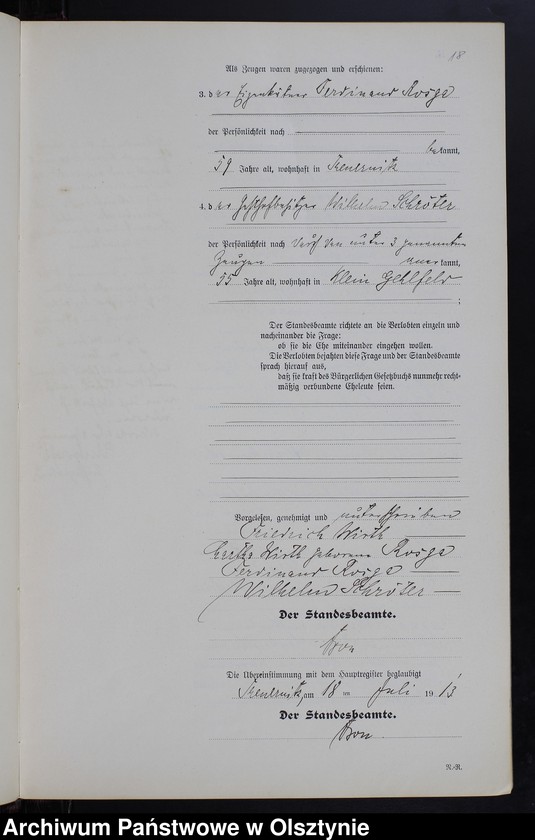 18
Als Zeugen waren zugezogen und erschienen:
3. der Eigenkätner Ferdinand Rosge
der Persönlichkeit nach
bekannt,
59 Jahre alt, wohnhaft in
4. der Wilhelm Schröter
der Persönlichkeit nach durch den unter 3 genannten
Zeugen anerkannt,
55 Jahre alt, wohnhaft in Klein Gehlfeld
;
Der Standesbeamte richtete an die Verlobten einzeln und
nacheinander die Frage:
ob sie die Ehe miteinander eingehen wollen.
Die Verlobten bejahten diese Frage und der Standesbeamte
sprach hierauf aus,
daß sie kraft des Bürgerlichen Gesetzbuchs nunmehr recht-
mäßig verbundene Eheleute seien.
Vorgelesen, genehmigt und unterschrieben
Friedrich Wirth
Wirth geborene Rosge
Ferdinand Rosge
Wilhelm Schröter
Der Standesbeamte.
Die Übereinstimmung mit dem Hauptregister beglaubigt
am 18 ten Juli 1913
Der Standesbeamte.
N.-R.
Archiwum Państwowe w Olsztynie